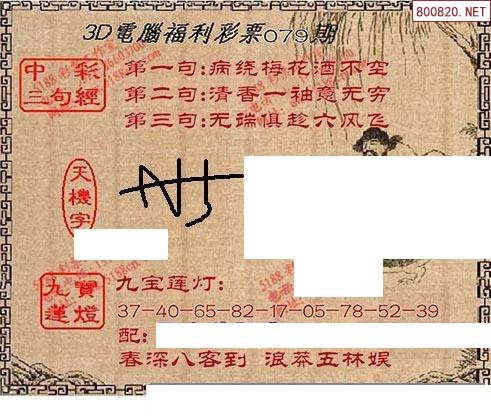 800820.NET
3D電腦福利彩票079期
中彩
三句經
第一句:病绕梅花酒不空
第二句:清香一袖意无穷
第三句:无端俱趁六风飞
天機字
九寶
蓮燈
九宝莲灯:
37-40-65-82-17-05-78-52-39
配:
春深八客到 浪莽五林娱